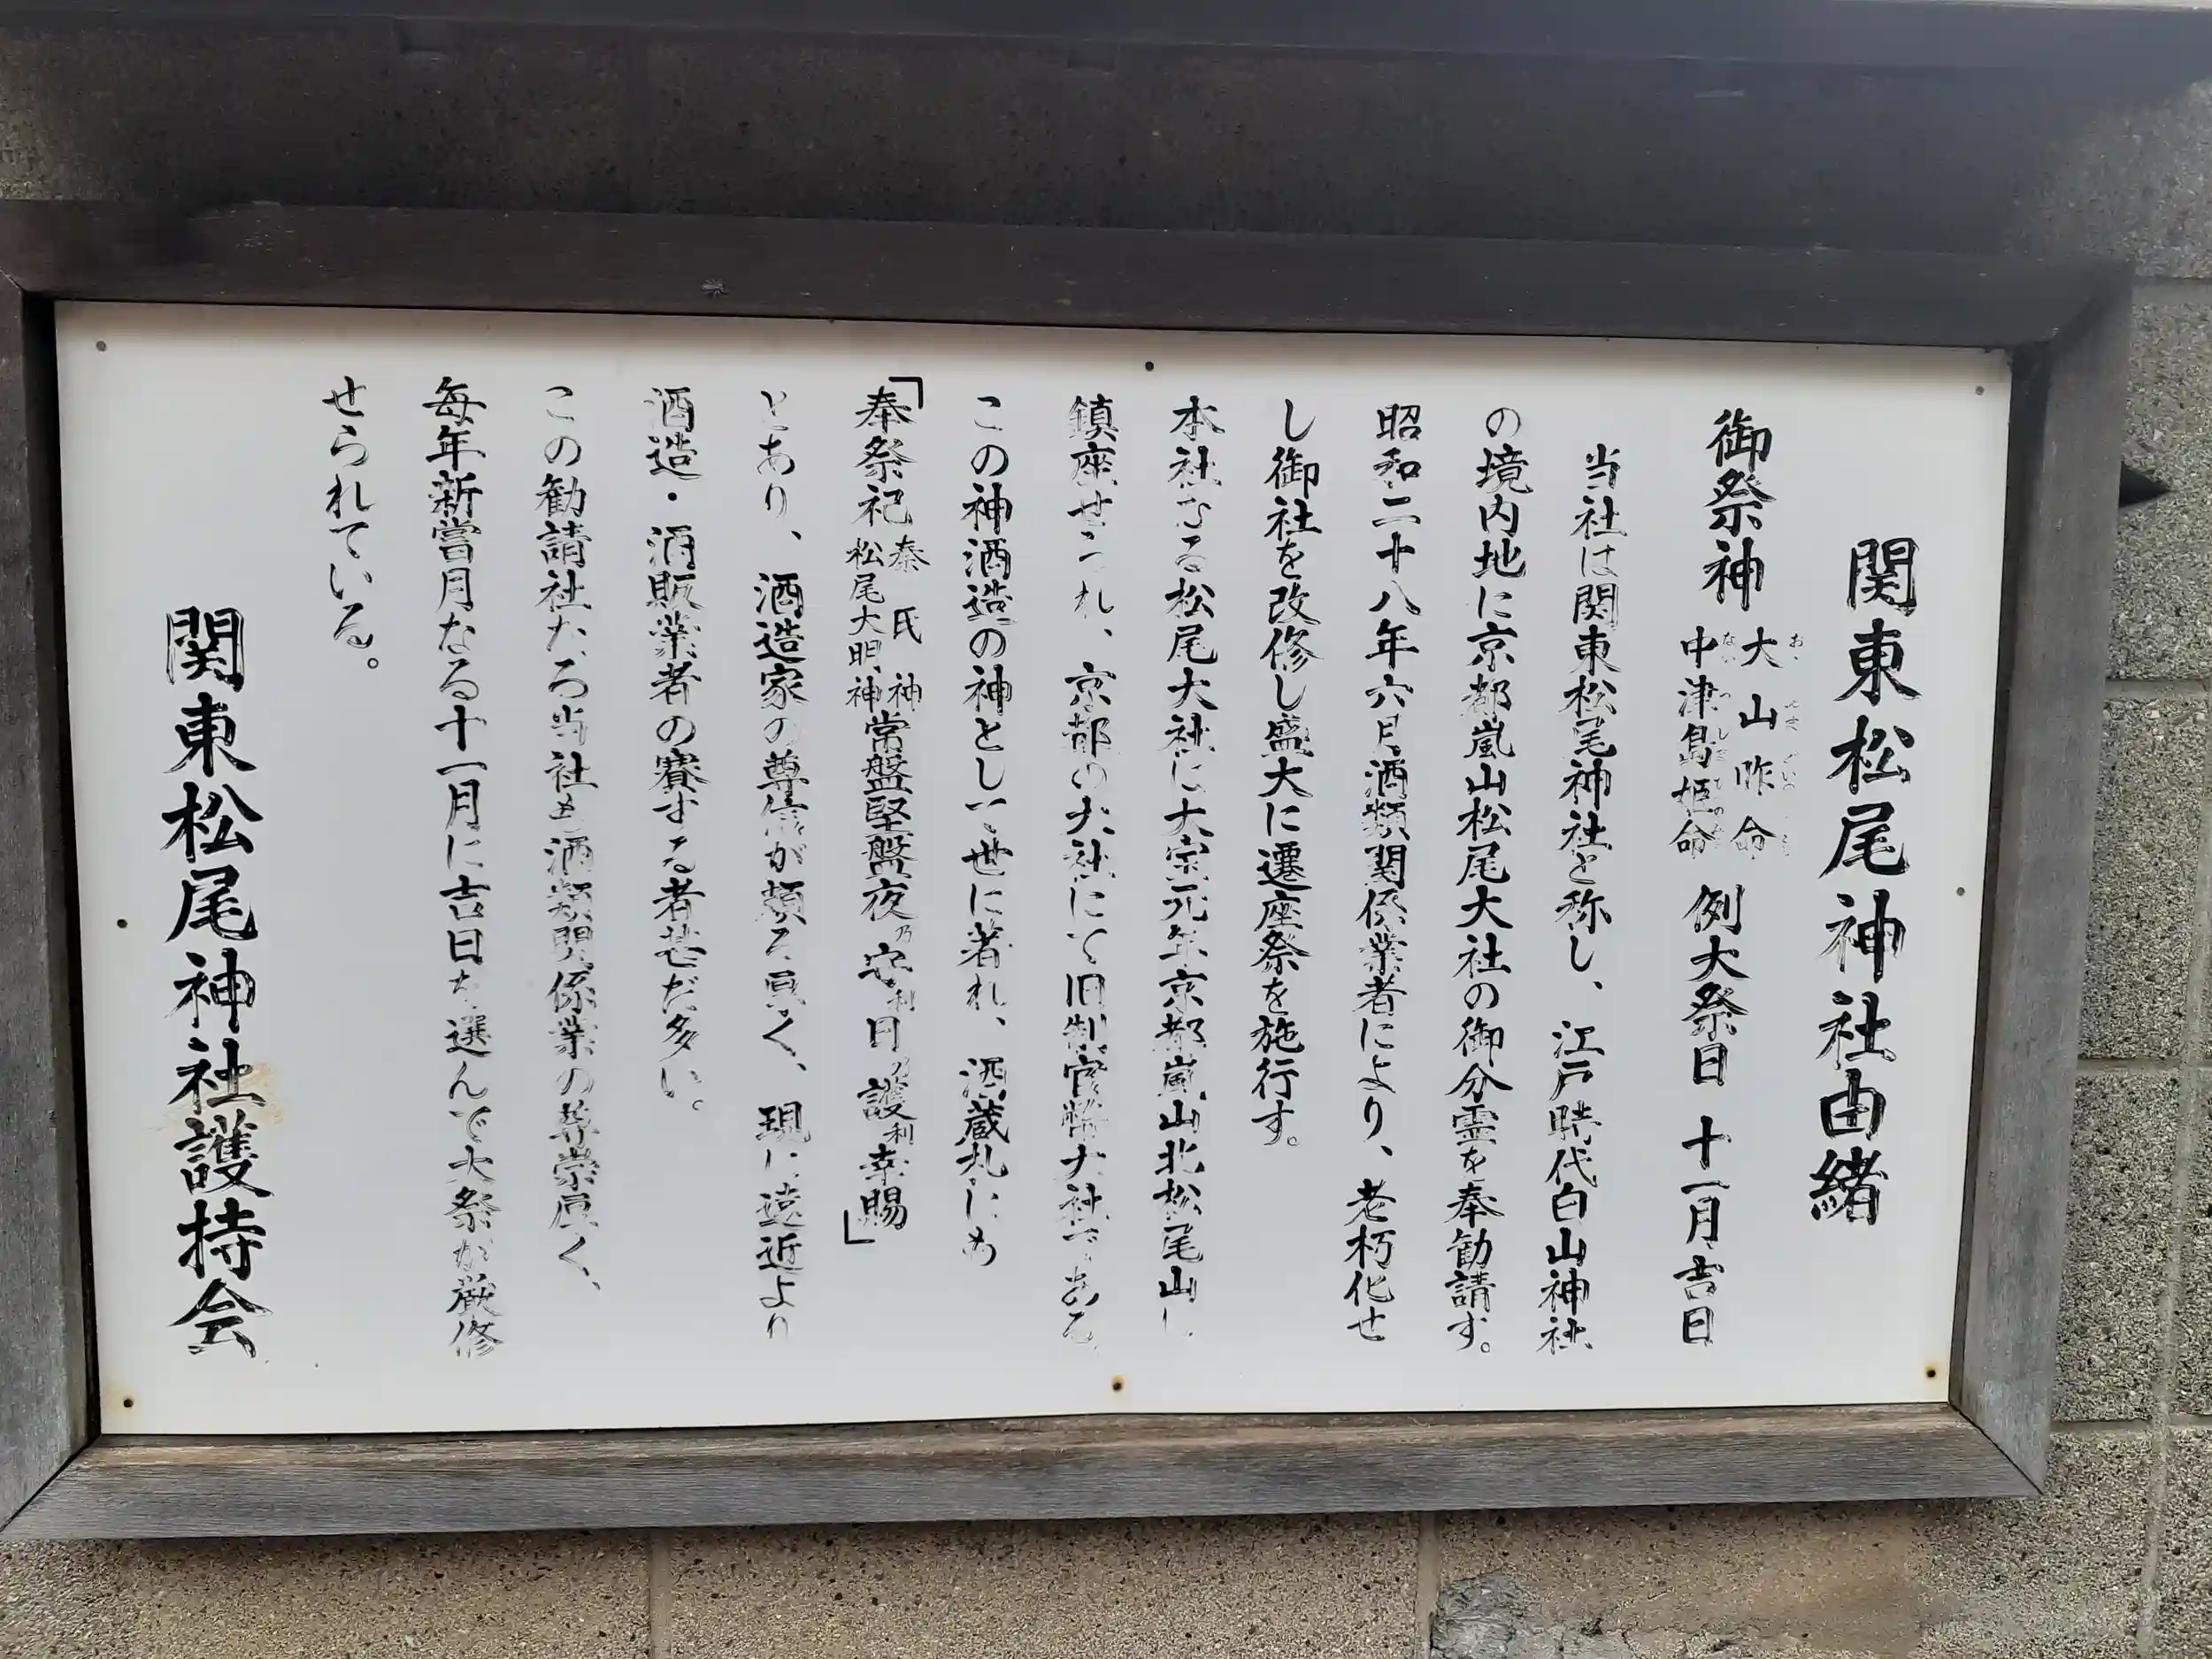 関東松尾神社由緒
御祭神 大山昨命 中津島姫命 例大祭日 十一月吉日
当社は関東松尾神社と称し、江戸時代白山神社
の境内地に京都嵐山松尾大社の御分霊を奉勧請す。
昭和二十八年六月酒類関係業者により、老朽化せ
し御社を改修し盛大に遷座祭を施行す。
本社なる松尾大社は大宗元年京都嵐山北松尾山し
鎮座せられ、京都の大社にて旧制官幣大社である
この神酒造の神として世に著れ、酒蔵札にも
「奉祭祀 秦氏神 松尾大明神 常盤堅盤夜乃守利日乃護利幸賜」
とあり、酒造家の尊信が頗る厚く、現に遠近より
酒造・酒販業者の賽する者甚だ多い。
この勧請社たる当社も酒類関係業の尊崇厚く、
毎年新嘗月なる十一月に吉日を選んで大祭が厳修
せられている。
関東松尾神社護持会